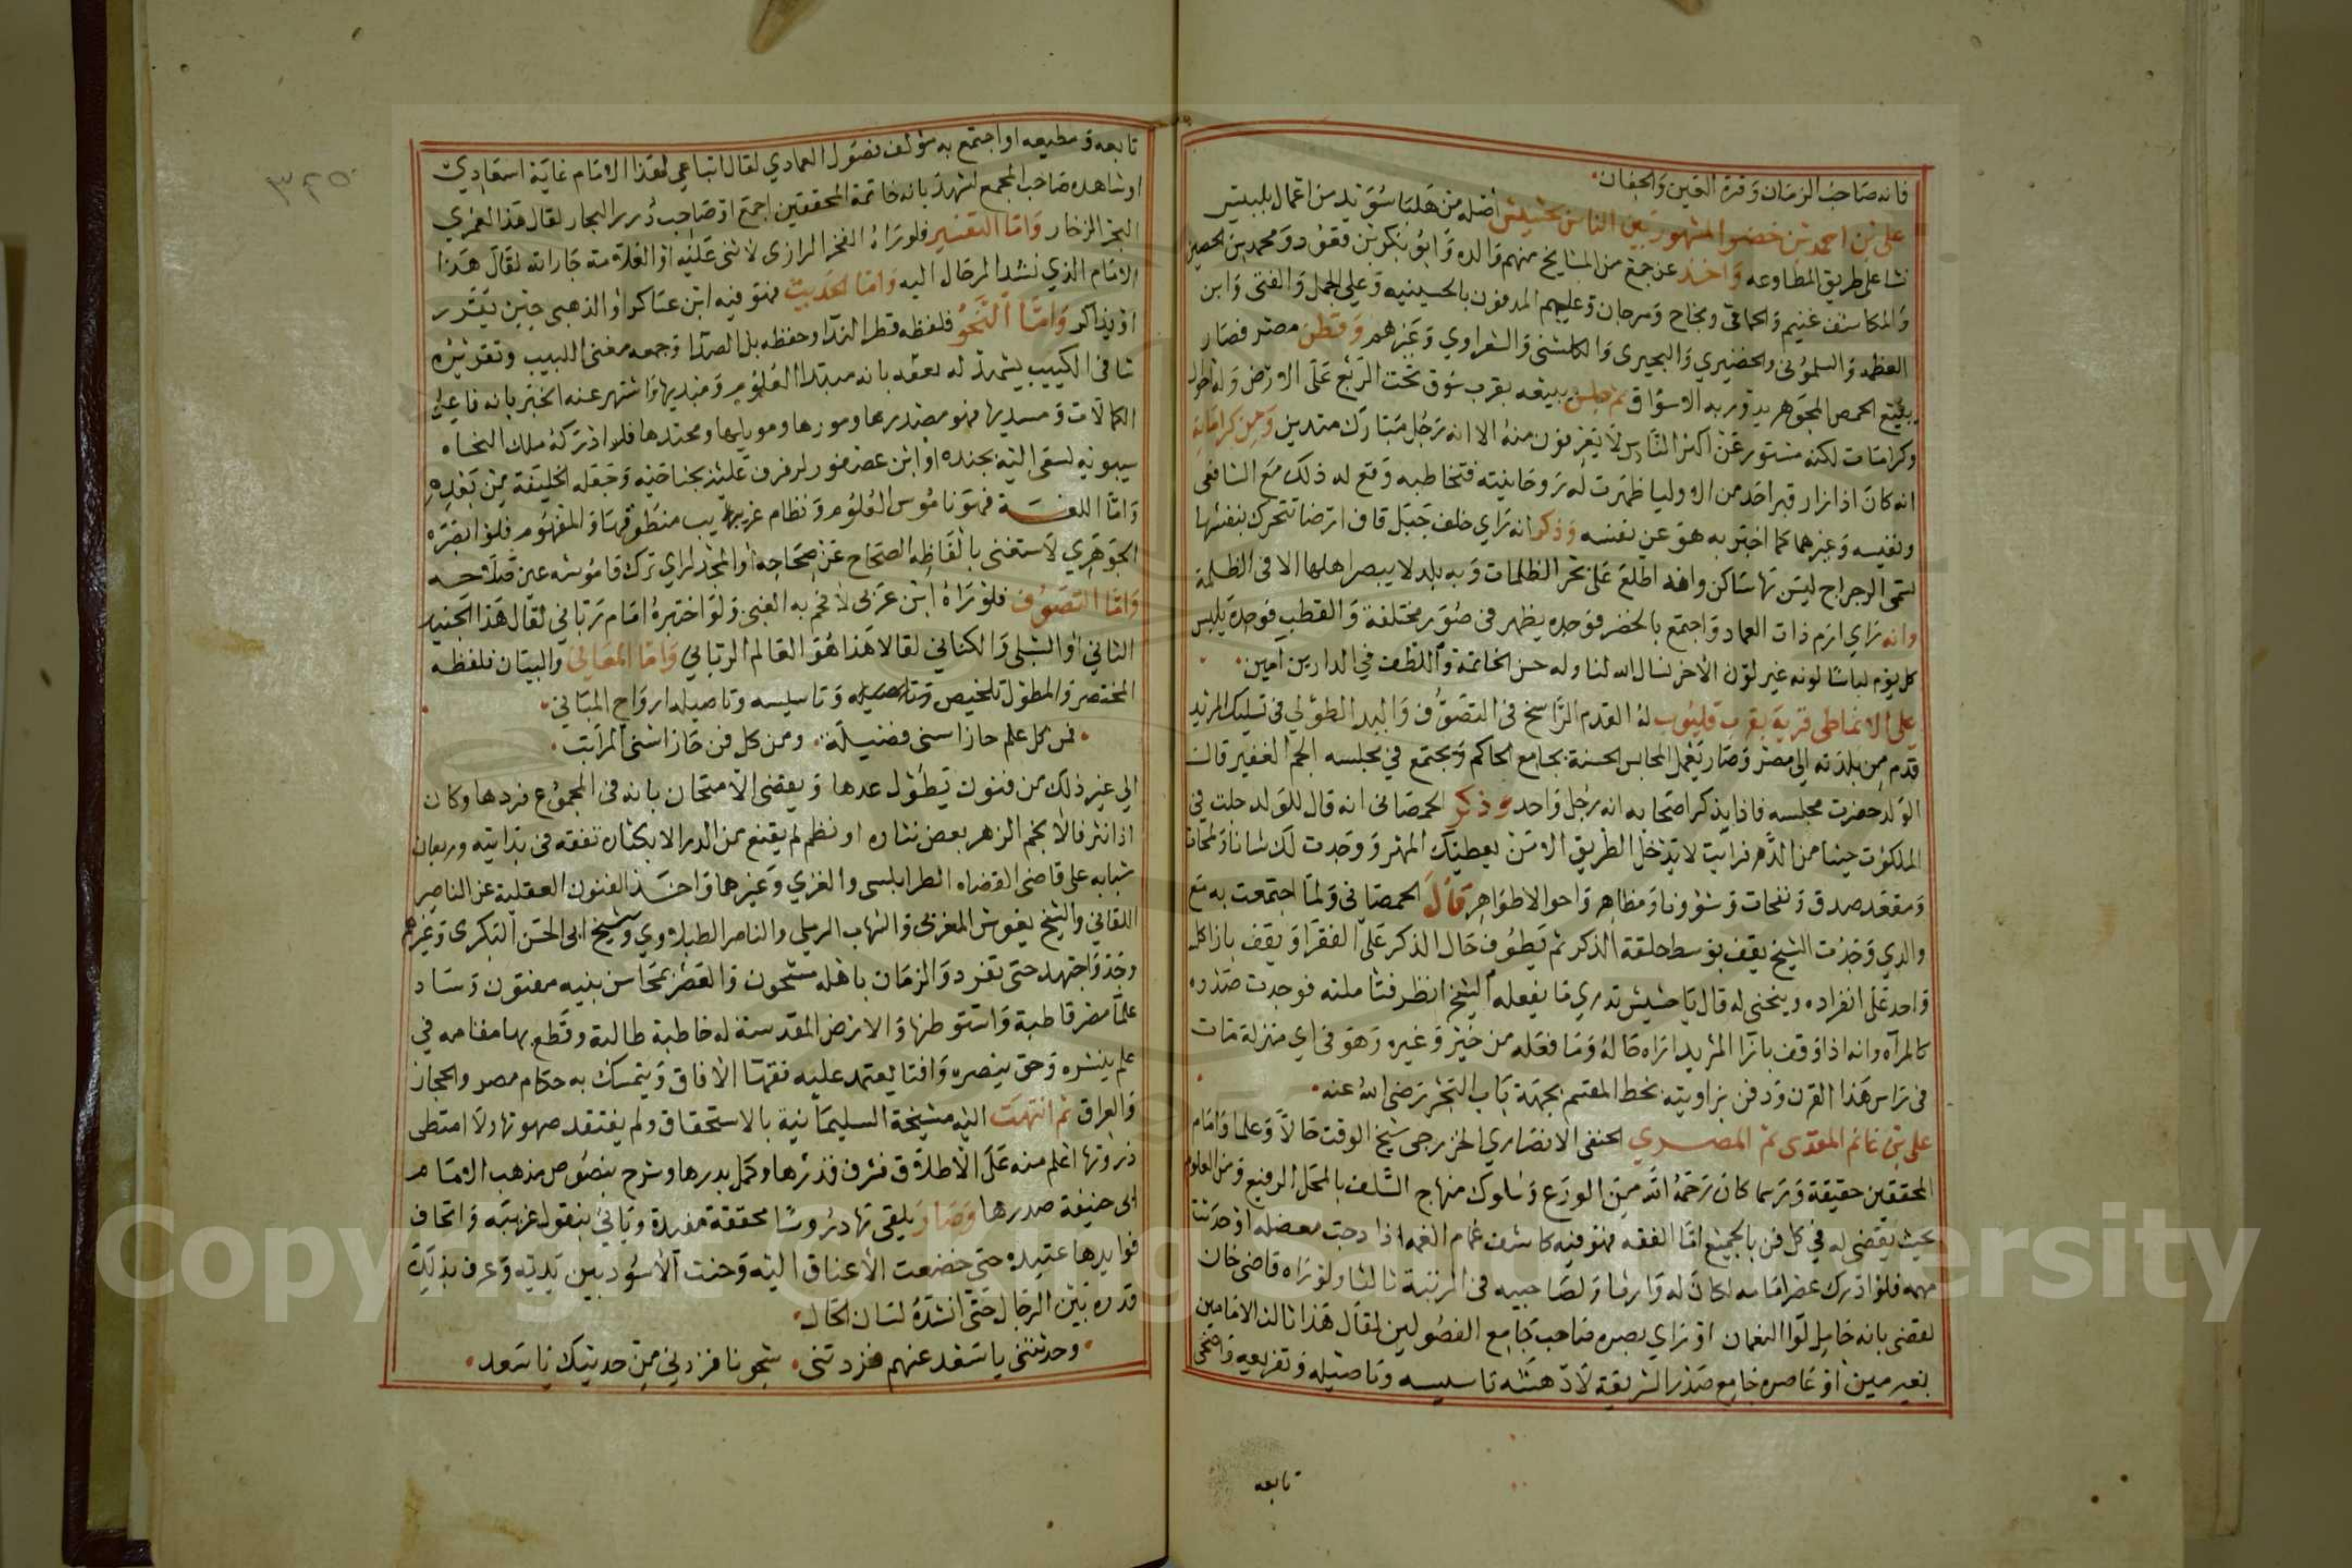 فانه صاحب الزمان وقرة العين والجفان
علي بن احمد بن خضر المشهور بين الناس بحشيش اصله من هلبا سويد من اعمال بلبيس
نشا على طريق المطاوعه واخذ عن جمع من المشايخ منهم والده وابو بكر بن قعود ومحمد بن الحصين
والمكاشف غنيم والحماقي ونجاح ومرجان وعليهم المدفون بالحسينيه وعلي الجمل والفتى وابن
العظمه والسلموني والخضيري والبحيري والكلشني والشعراوي وغيرهم وقطن مصر فصار
يبيع الحمص المجوهر يدور به الاسواق ثم جلس ببيعه بقرب سوق تحت الربع على الارض وله احوال
وكرامات لكنه مستور عن اكثر الناس لا يعرفون منه الا انه رجل مبارك متدين ومن كراماته
انه كان اذا زار قبر احد من الاوليا ظهرت له روحانيته فتخاطبه وقع له ذلك مع الشافعي
ونفيسه وغيرهما كما اخبر به هو عن نفسه وذكر انه راي خلف جبل قاف ارضا تتحرك بنفسها
تسمى الرجراج ليس بها ساكن وانه اطلع على بحر الظلمات وبه بلد لا يبصر اهلها الا في الظلمة
وانه راي ارم ذات العماد واجتمع بالخضر فوجده يظهر في صور مختلفة والقطب فوجده يلبس
كل يوم لباسا لونه غير لون الاخر نسال الله لنا وله حسن الخاتمة واللطف في الدارين امين
علي الانماطي قرية بقرب قليوب له القدم الراسخ في التصوف واليد الطولي في تسليك المريد
قدم من بلدته الي مصر وصار يعمل المجالس الحسنة بجامع الحاكم ويجتمع في مجلسه الجم الغفير قال
الولد حضرت مجلسه فاذا يذكر اصحابه انه رجل واحد وذكر الحمصاني انه قال للولد جلت في
الملكوت حينا من الدهر فرايت لا يدخل الطريق الا من يعطيك المهر ووجدت لك شانا ولمحات
ومقعد صدق ونفحات وشؤونا ومظاهر واحوالا ظواهر قال الحمصاني ولما اجتمعت به مع
والدي وجدت الشيخ يقف بوسط حلقة الذكر ثم يطوف حال الذكر على الفقرا ويقف بازا كل
واحد على انفراده وينحني له قال يا حشيش تدري ما يفعله الشيخ انظر فتاملته فوجدت صدره
كالمرآه وانه اذا وقف بازا المريد اراه حاله وما فعله من خير وغيره وهو في اي منزلة مات
في راس هذا القرن ودفن بزاويته بخط المقسم بجهة باب البحر رضي الله عنه
علي بن غانم المقدسي ثم المصري الحنفي الانصاري الخزرجي شيخ الوقت حالا وعلما وامام
المحققين حقيقة ورسما كان رحمه الله من الورع وسلوك منهاج السلف بالمحل الرفيع ومن العلوم
بحيث يقضى له في كل فن بالجميع اما الفقه فهو فيه كاشف غمام الغمه اذا دجت معضله او حدثت
مهمه فلو ادرك عصر امامه لكان له وارثا ولصاحبيه في المرتبة ثالثا ولو راه قاضي خان
لقضى بانه حامل لوا النعمان او راي بصره صاحب جامع الفصولين لقال هذا ثالث الامامين
بغير مين او عاصره جامع صدر الشريعة لادهشه تاسيسه وتاصيله وتفريعه واضحى
تابعه
تابعه ومطيعه او اجتمع به مؤلف فصول العمادي لقال اتباعي لهذا الامام غاية اسعادي
او شاهده صاحب المجمع لشهد بانه خاتمة المحققين اجمع او صاحب درر البحار لقال هذا لعمري
البحر الزخار واما التفسير فلو راه الفخر الرازي لاثنى عليه او العلامة جارالله لقال هذا
الامام الذي تشد الرحال اليه واما الحديث فهو فيه ابن عساكر او الذهبي حين يقرر
او يذاكر واما النحو فلفظه قطر الندا وحفظه بل الصدا وجمعه مغني اللبيب وتقريره
شافي الكييب يشهد له بعقد بانه مبتدا العلوم ومبديها واشتهر عنه الخبر بانه فاعل
الكمالات ومسديها فهو مصدرها وموردها ومحتدها فلو ادركه ملك النحاه
سيبويه لسعى اليه بجنده او ابن عصفور لرفرف عليه بجناحيه وجعله الخليفة من بعده
واما اللغة فهو ناموس العلوم ونظام غرايب منطوقها والمفهوم فلو ابصره
الجوهري لاستغنى بالفاظه الصحاح عن صحاحه او المجد لراي ترك قاموسه عين صلاحه
واما التصوف فلو راه ابن عربي لافخم به الغبي ولو اختبره امام رباني لقال هذا الجنيد
الثاني او الشبلي والكناني لقالا هذا هو العالم الرباني واما المعاني والبيان فلفظه
المختصر والمطول تلخيص وتاسيسه وتاصيله ارواح المباني
فمن كل علم حاز اسنى فضيلة ومن كل فن حاز اسنى المراتب
الي غير ذلك من فنون يطول عدها ويقضي الامتحان بانه في المجموع فردها وكان
اذا نثر فالانجم الزهر بعض نثاره او نظم لم يقنع من الدر الا بكثاره تفقه في بدايته وريعان
شبابه على قاضي القضاه الطرابلسي والغزي وغيرهما واخذ الفنون العقلية عن الناصر
اللقاني والشيخ يغوش المغربي والشهاب الرملي والناصر الطبلاوي وشيخ ابي الحسن البكري وغيرهم
وجد واجتهد حتى تفرد والزمان باهله مشحون والعصر بمحاسن بنيه مفتون وساد
علما مصر قاطبة واستوطنها والارض المقدسة له خاطبة طالبة وقطع بها مقامه في
علم ينشره وحق ينصره وافتا يعتمد عليه فقها الافاق ويتمسك به حكام مصر والحجاز
والعراق ثم انتهت اليه مشيخة السليمانية بالاستحقاق ولم يفتقد صهوتها ولا امتطى
ذروتها اعلم منه على الاطلاق فشرف قدرها وكمل بدرها وشرح بنصوص مذهب الامام
ابي حنيفة صدرها وصار يلقي بها دروسا محققة مفيدة وياتي بنقول غريبه واتحاف
فوايدها عتيده حتى خضعت الاعناق اليه وحنت الاسود بين يديه وعرف بذلك
قدره بين الرجال حتى انشده لسان الحال
وحدثتني يا سعد عنهم فزدتني شجونا فزدني من حديثك يا سعد
٣٢٥
Copyright © King Saud University